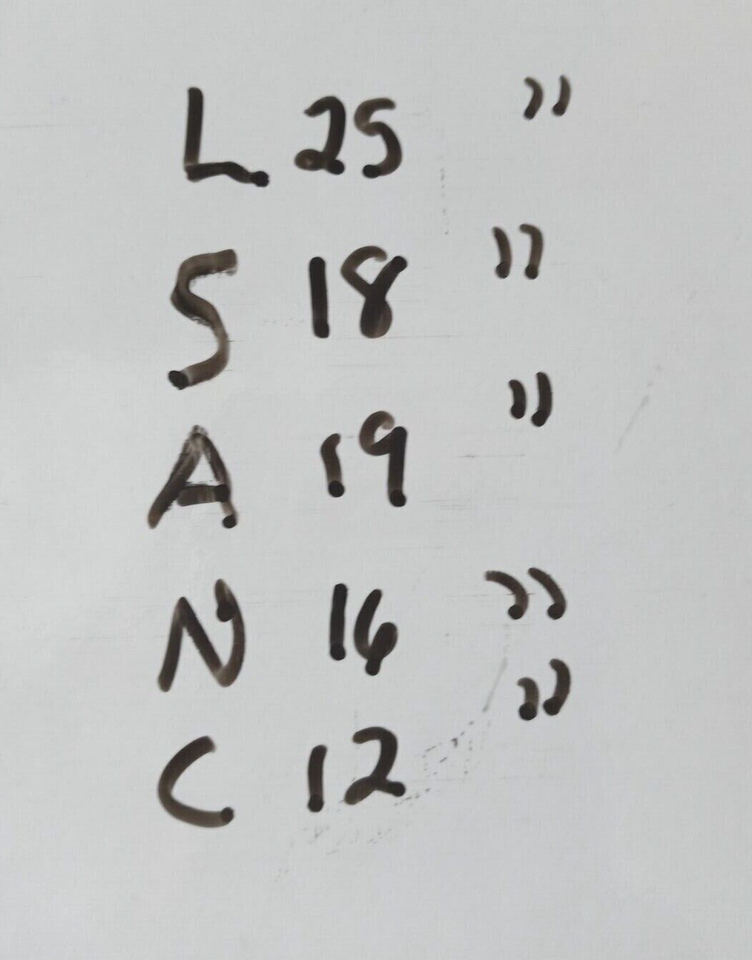 L 25 "
S 18 "
A 19 "
N 16 "
C 12 "